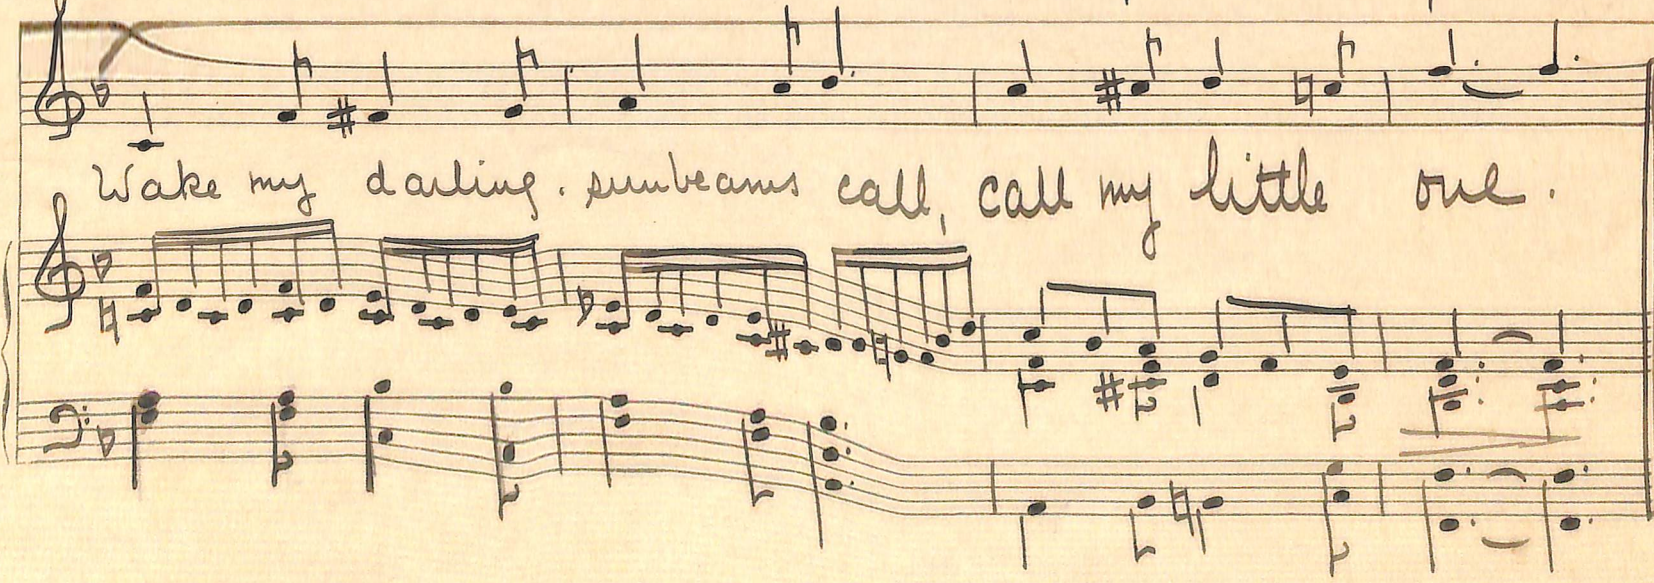 Wake my darling. sunbeams call, call my little one.